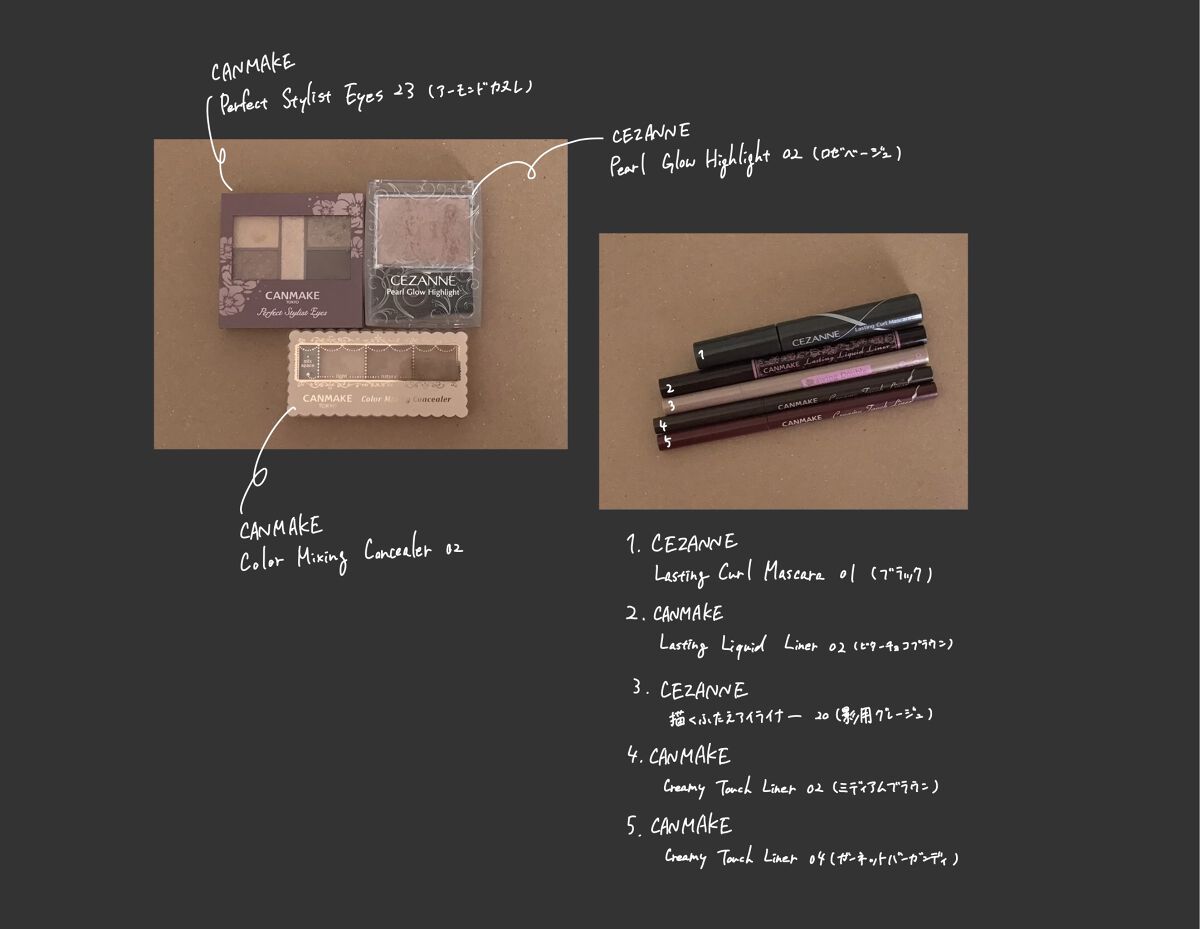 CANMAKE
Perfect Stylist Eyes 23 (アーモンドカヌレ)
CEZANNE
Pearl Glow Highlight 02 (ロゼベージュ)
CANMAKE
TOKYO
Perfect Stylist Eyes
CEZANNE
Pearl Glow Highlight
mix
space
light
natural
CANMAKE
TOKYO
Color Mixing Concealer
CANMAKE
Color Mixing Concealer 02
1
CEZANNE Lasting Curl Mascara
2
CANMAKE Lasting Liquid Liner
3
4
CANMAKE Creamy Touch Liner
5
CANMAKE Creamy Touch Liner
1. CEZANNE
Lasting Curl Mascara 01 (ブラック)
2. CANMAKE
Lasting Liquid Liner 02 (ビターチョコブラウン)
3. CEZANNE
描くふたえアイライナー 20 (影用グレージュ)
4. CANMAKE
Creamy Touch Liner 02 (ミディアムブラウン)
5. CANMAKE
Creamy Touch Liner 04 (ガーネットバーガンディ)